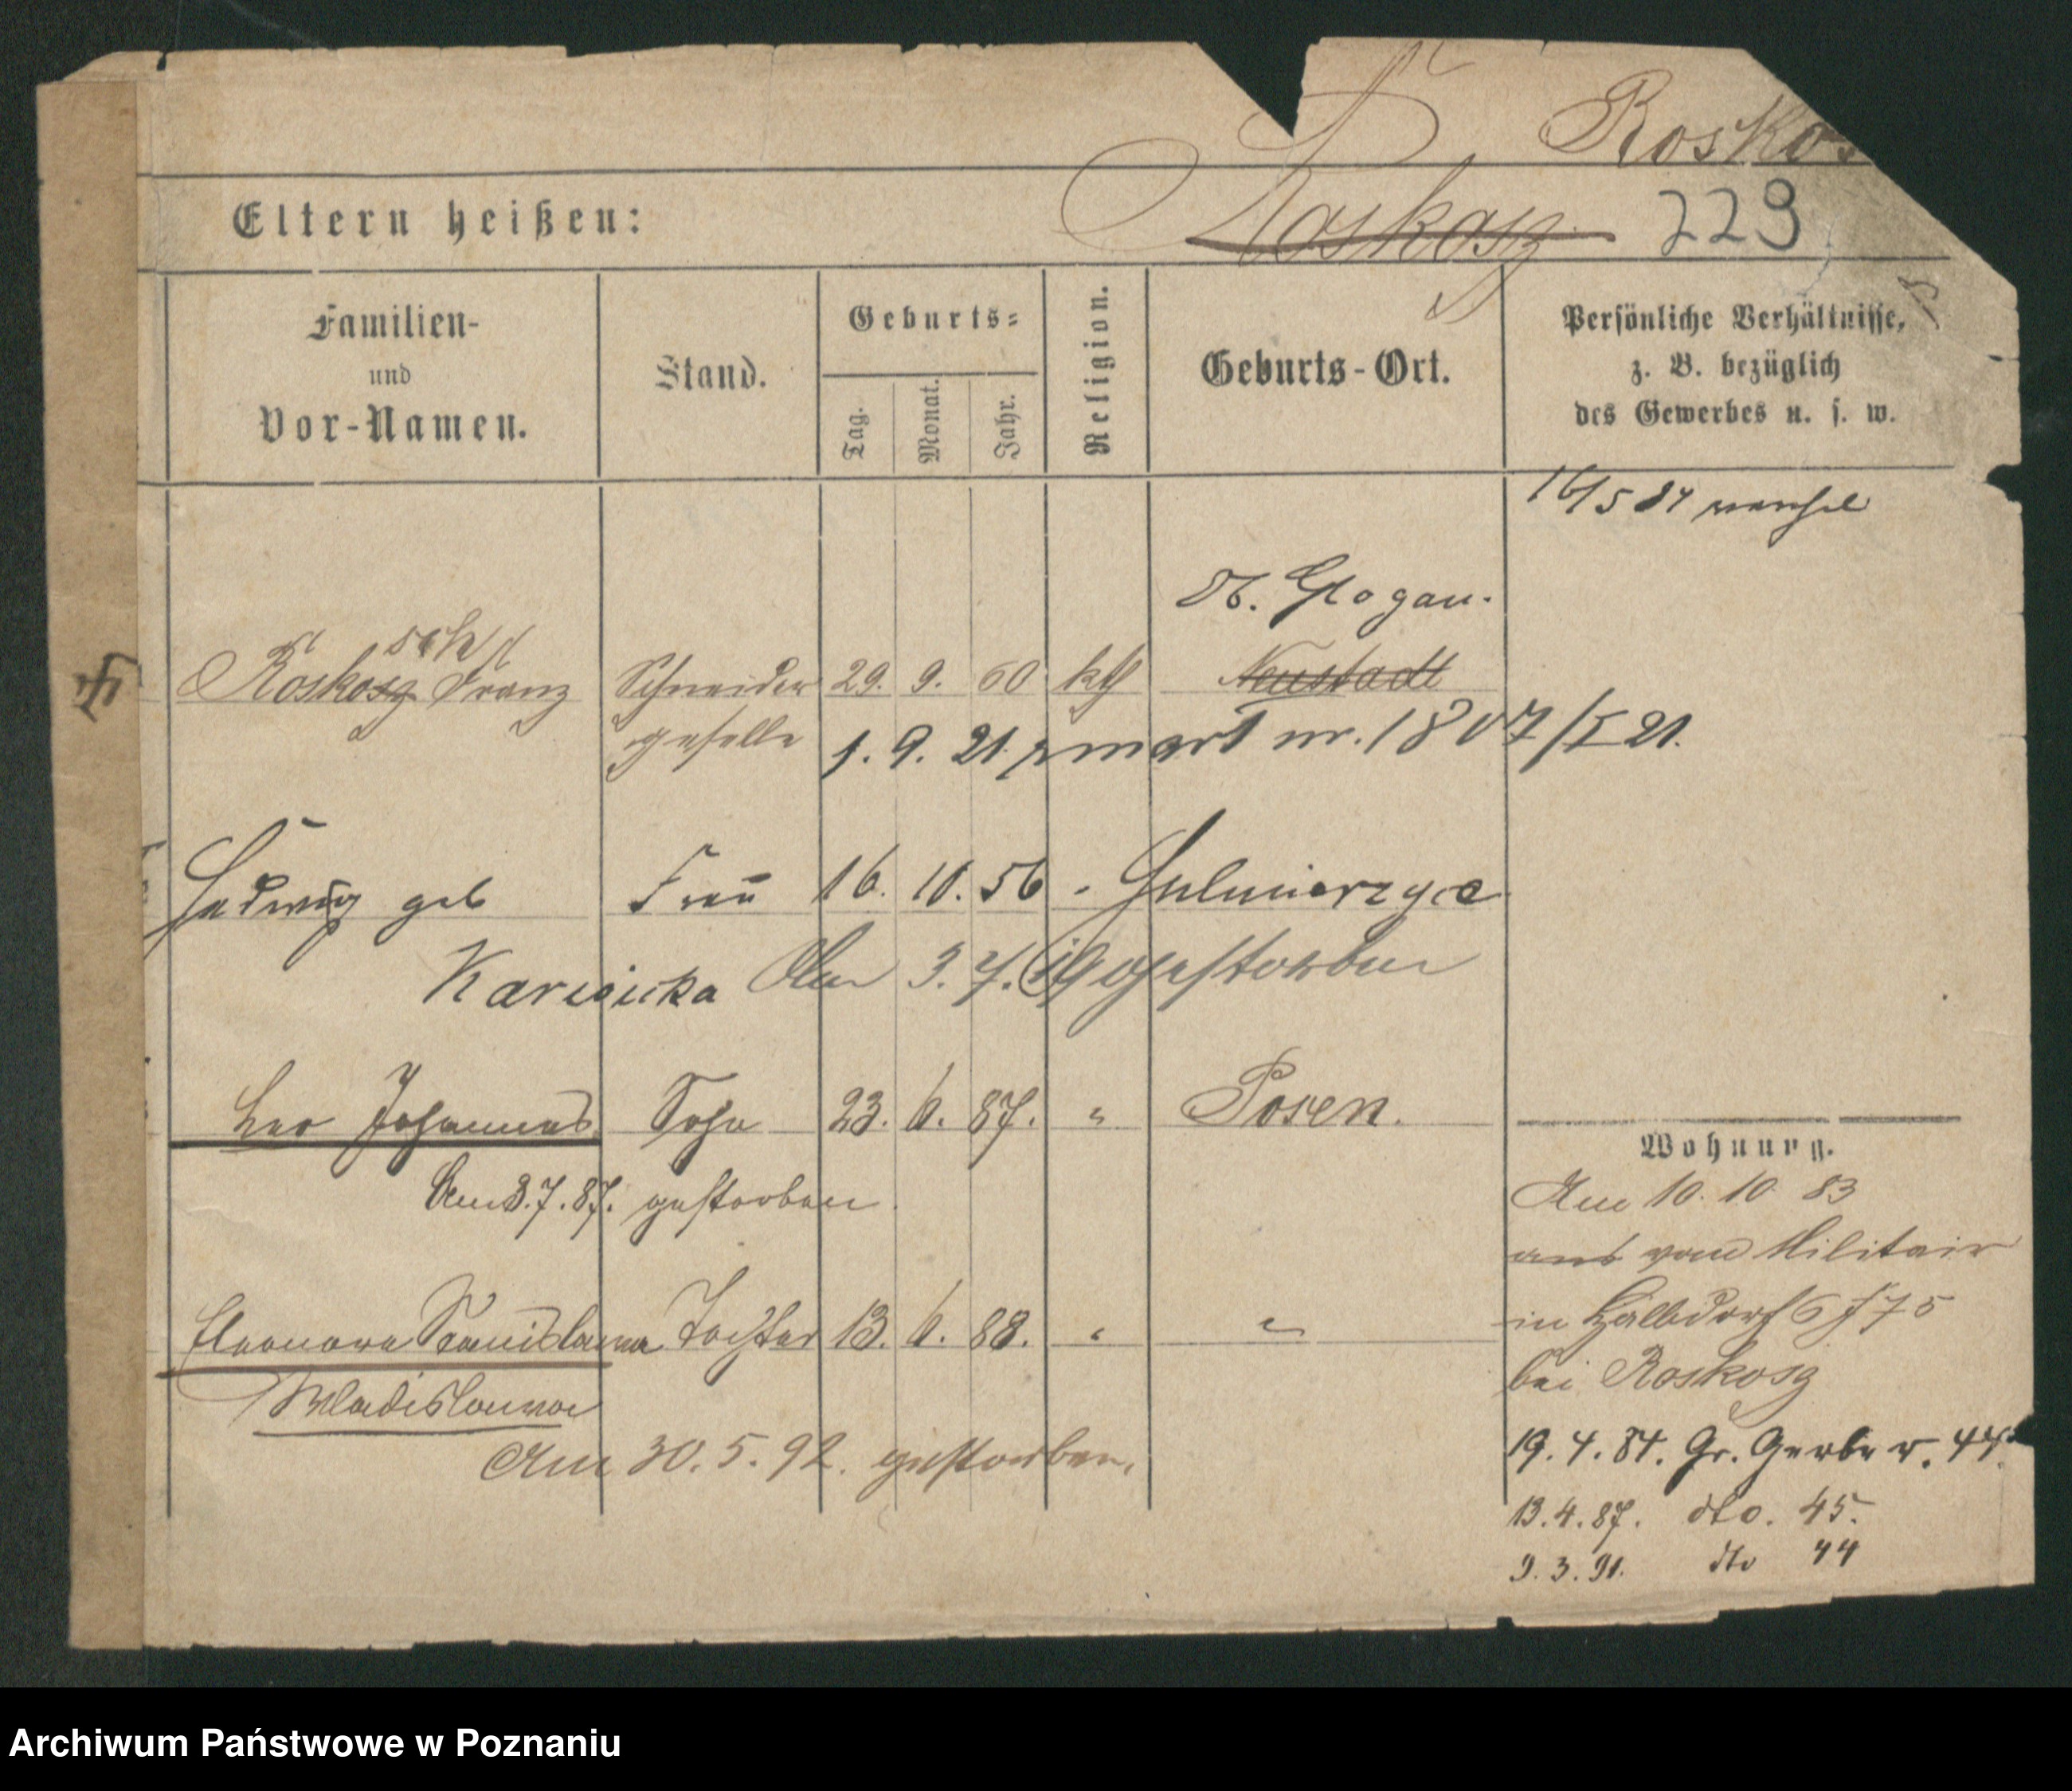 Rosko
Eltern heißen:
Roskosz
229
Familien-
und
Vor-Namen.
Stand.
Geburts-
Tag.
Monat.
Jahr.
Religion.
Geburts-Ort.
Persönliche Verhältnisse,
z. B. bezüglich
des Gewerbes u. s. w.
16/5 84
Ob. Glogau.
sch
Roskosz Franz Schneider 29. 9. 60 kth Neustadt
geselle 1. 9. 21. zmarł nr. 1807/I 21.
Hedwig geb Frau 16. 10. 56 "
Am 3. 7. 19 gestorben
Leo Johannes Sohn 23. 6. 87. " Posen.
Am 3. 7. 87. gestorben
Eleonora Stanislawa Tochter 13. 6. 88. " "
Wladislawa
Am 30. 5. 92. gestorben.
Wohnung.
Am 10. 10. 83
aus vom Militair
in Halbdorf 6
bei Roskosz
19. 4. 84. Gr. Gerber. 44.
13. 4. 87. dto. 45.
9. 3. 91. dto 44
Archiwum Państwowe w Poznaniu